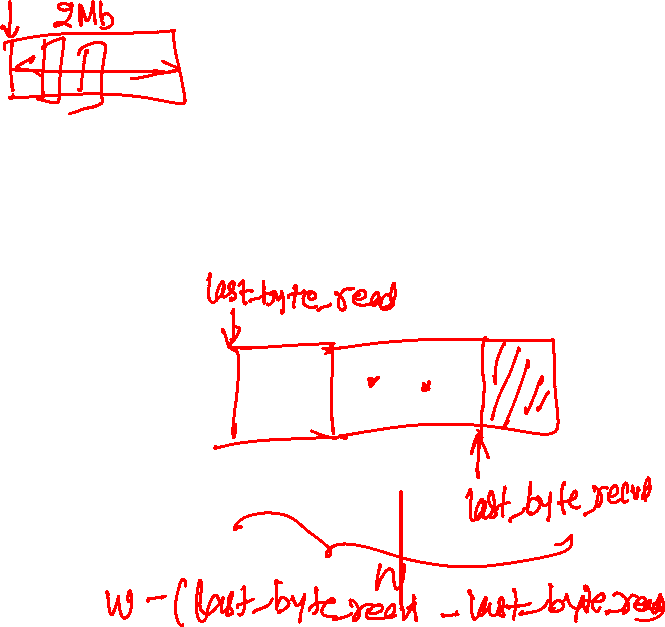 2Mb
last_byte_read
last_byte_recvd
n
w - (last_byte_recvd - last_byte_read